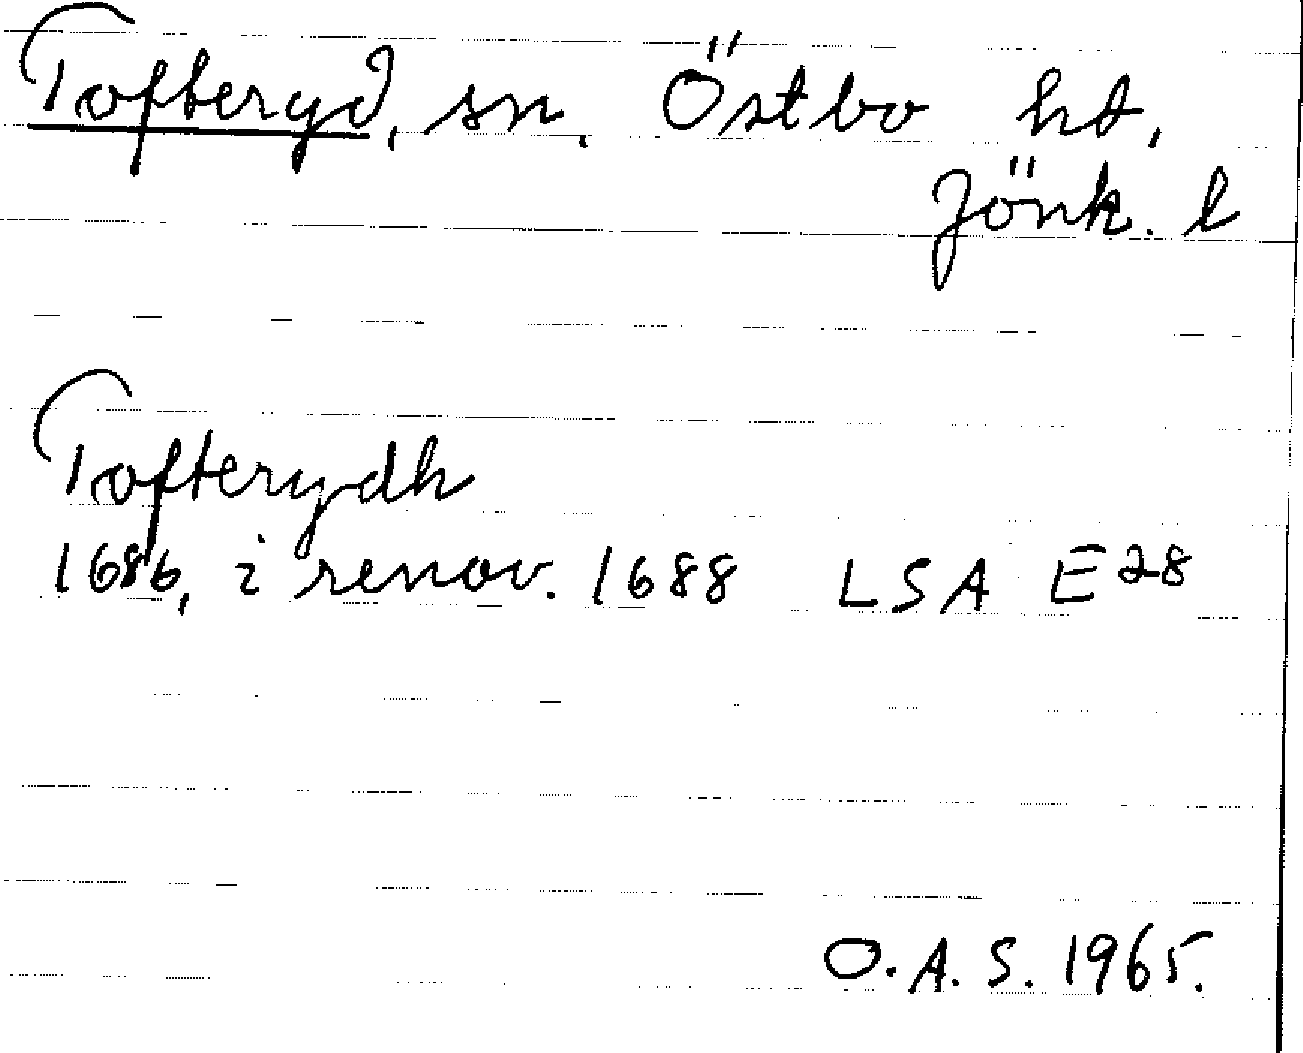 Tofteryd, sn. Östbo hd,
Jönk. l
Tofterydh
1686, i renov. 1688 LSA E28
O.A.S. 1965.